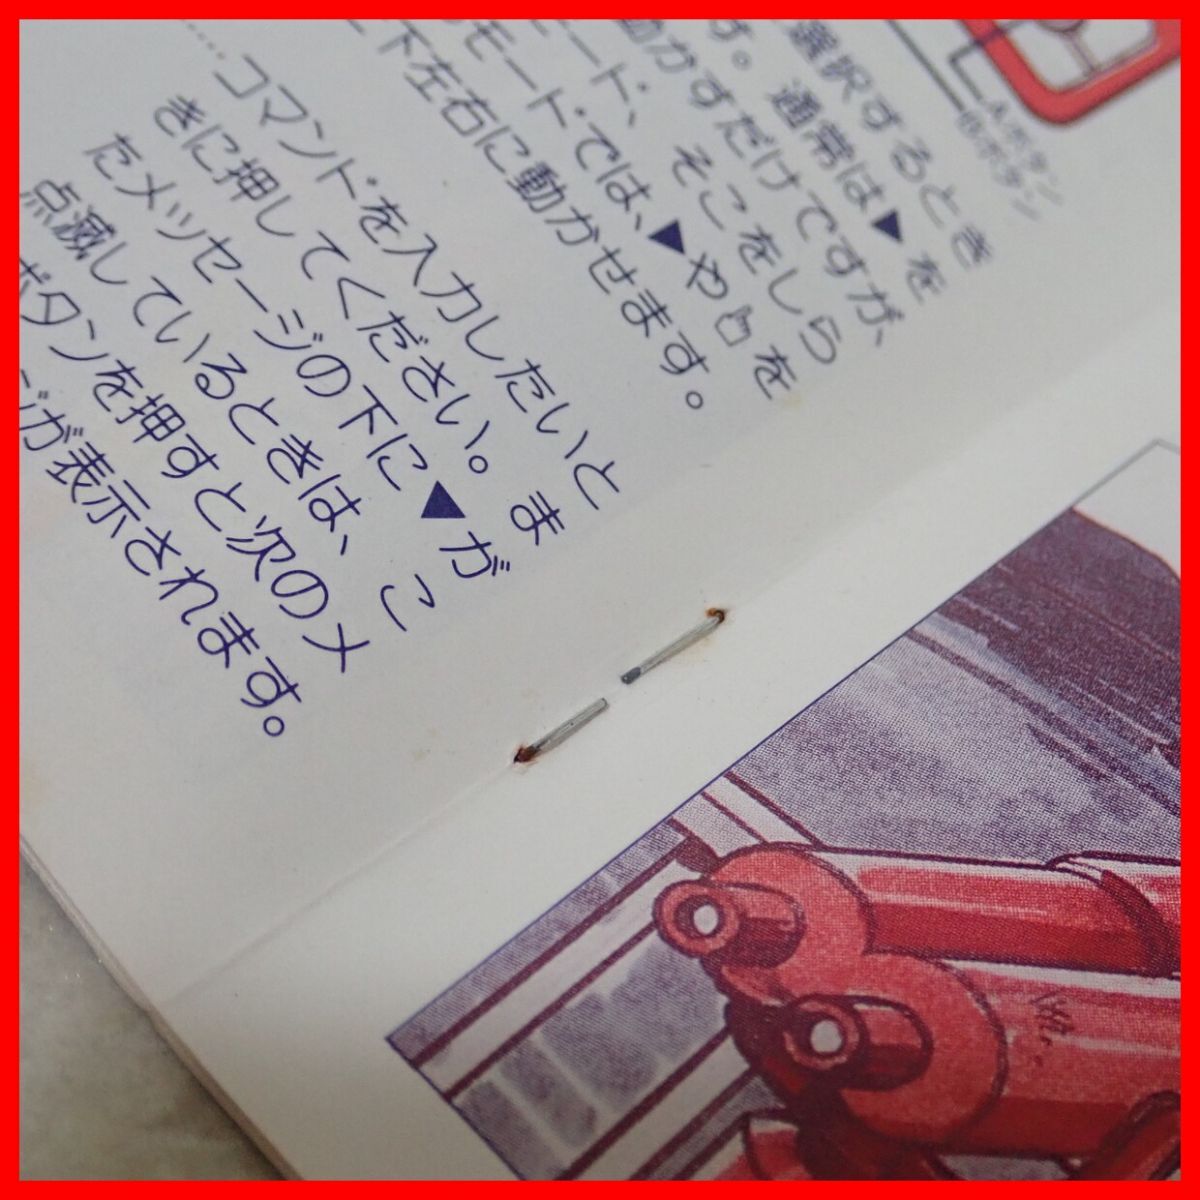 Aボタン
Bボタン
選択するとき
す。通常は▼を
動かすだけですが、
ード、そこをしら
モードでは、▼や を
下左右に動かせます。
……コマンドを入力したいと
きに押してください。ま
たメッセージの下に▼が
点滅しているときは、こ
ボタンを押すと次のメ
ジが表示されます。